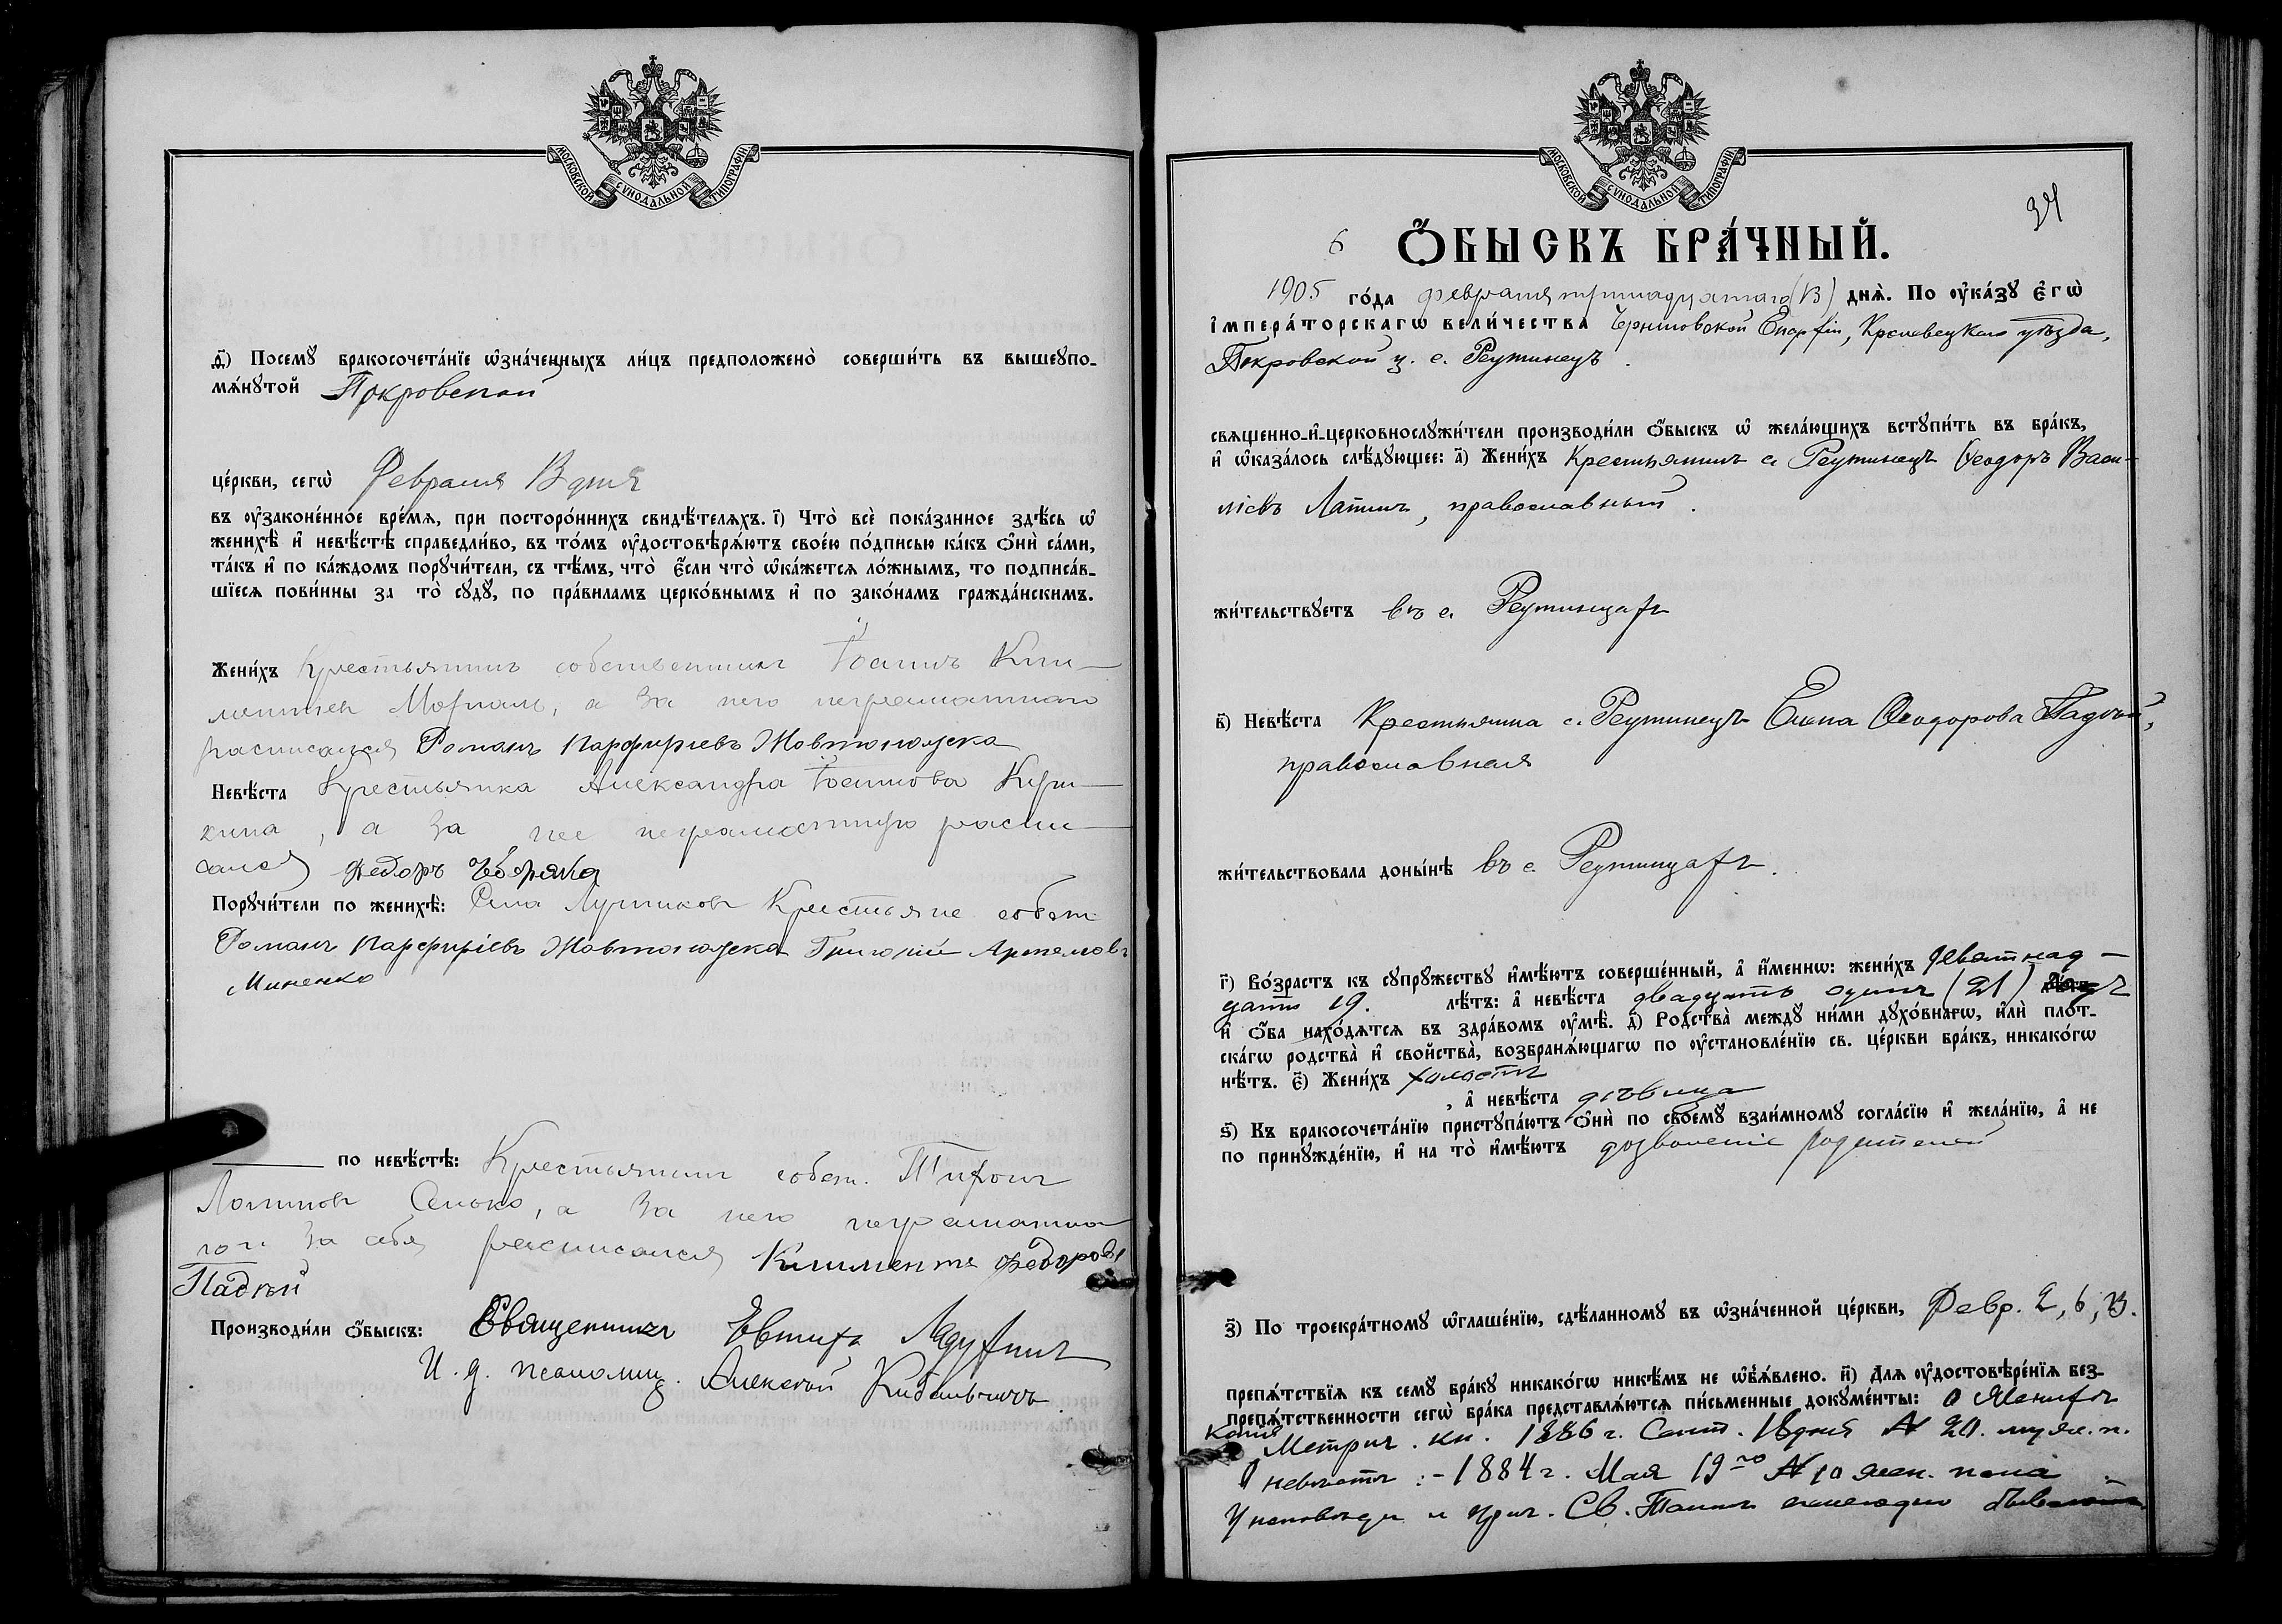 МОСКОВСКОЙ СѴНОДАЛЬНОЙ ТИПОГРАФІИ
д҃і) Посемꙋ бракосочета́нїе ѡ҆зна́ченныхъ ли́цъ предположено̀ соверши́ть въ вышеꙋпо-
мѧ́нꙋтой Покровской
це́ркви, сегѡ̀ Февраля 13 дня
въ ᲂу҆законе́нное вре́мѧ, при посторо́ннихъ свидѣ́телѧхъ. і҃) Что̀ всѐ пока́занное здѣ́сь ѡ҆
женихѣ̀ и҆ невѣ́стѣ справедли́во, въ то́мъ ᲂу҆достовѣрѧ́ютъ свое́ю по́дписью ка́къ ѻ҆нѝ са́ми,
та́къ и҆ по ка́ждомъ порꙋчи́тели, съ тѣ́мъ, что̀ є҆́сли что̀ ѡ҆ка́жетсѧ ло́жнымъ, то подписа́в-
шїесѧ пови́нны за то̀ сꙋдꙋ̀, по пра́виламъ церко́внымъ и҆ по зако́намъ гражда́нскимъ.
Жени́хъ Крестьянинъ собственникъ Іоаннъ Кли-
ментіев а за него неграмотнаго
расписался Романъ Парфиріевъ Жовтоножска
Невѣ́ста Крестьянка Александра Іоаннова
а за нее неграмотную распи-
сался Федоръ
Порꙋчи́тели по женихѣ̀: Крестьяне собст.
Романъ Парфиріевъ Жовтоножска Григорій Артемовъ
Миненко
по невѣ́стѣ: Крестьянинъ собст. Тихонъ
Логиновъ Сенько, а за него неграмотна-
го и за себя расписался Климентъ Федоровъ
Падкій
Производи́ли ѻ҆́быскъ: Священникъ Евтихъ
И. д. псаломщ. Алексѣй
34
МОСКОВСКОЙ СѴНОДАЛЬНОЙ ТИПОГРАФІИ
6 Ѻ҆́БЫСКЪ БРА́ЧНЫЙ.
1905 го́да февраля тринадцатаго (13) днѧ̀. По ᲂу҆ка́зꙋ Є҆гѡ̀
І҆мпера́торскагѡ вели́чества Черниговской Епархіи, Кролевецкаго уѣзда,
Покровской ц. с. Реутинецъ.
свѧщенно-и҆-церковнослꙋжи́тели производи́ли ѻ҆́быскъ ѡ҆ жела́ющихъ встꙋпи́ть въ бра́къ,
и҆ ѡ҆каза́лось слѣ́дꙋющее: а҃) Жени́хъ Крестьянинъ с. Реутинецъ Ѳеодоръ Васи-
ліевъ Лапинъ, православный.
жи́тельствꙋетъ въ с. Реутинцахъ
в҃) Невѣ́ста Крестьянка с. Реутинецъ Елена Ѳеодорова Падкій,
православная
жи́тельствовала доны́нѣ въ с. Реутинцахъ.
г҃) Во́зрастъ къ сꙋпрꙋжествꙋ и҆мѣ́ютъ соверше́нный, а҆ и҆́меннѡ: жени́хъ девятнад-
цать 19. лѣ́тъ: а҆ невѣ́ста двадцать одинъ (21) годъ
и҆ ѻ҆́ба нахо́дѧтсѧ въ здра́вомъ ᲂу҆мѣ̀. д҃) Родства̀ междꙋ ни́ми дꙋхо́внагѡ, и҆лѝ пло́т-
ска́гѡ родства̀ и҆ свойства̀, возбранѧ́ющагѡ по ᲂу҆становле́нїю св. це́ркви бра́къ, никако́гѡ
нѣ́тъ. є҃) Жени́хъ холостъ
, а҆ невѣ́ста дѣвица
ѕ҃) Къ бракосочета́нїю пристꙋпа́ютъ ѻ҆нѝ по своемꙋ̀ взаи́мномꙋ согла́сїю и҆ жела́нїю, а҆ не
по принꙋжде́нїю, и҆ на то̀ и҆мѣ́ютъ дозволеніе родителей
з҃) По троекра́тномꙋ ѡ҆глаше́нїю, сдѣ́ланномꙋ въ ѡ҆зна́ченной це́ркви, Февр. 2, 6, 13.
препѧ́тствїѧ къ семꙋ̀ бра́кꙋ никако́гѡ никѣ́мъ не ѡ҆б̾ѧ́влено. и҃) Длѧ ᲂу҆достовѣре́нїѧ без-
препѧ́тственности сегѡ̀ бра́ка представлѧ́ютсѧ пи́сьменные докꙋме́нты: О женихѣ
копія Метрич. кн. 1886 г. Сент. 18 дня № 20. муж. п.
О невѣстѣ: - 1884 г. Мая 19го № 10 жен. пола
У исповѣди и прич. Св. Таинъ ежегодно бывают